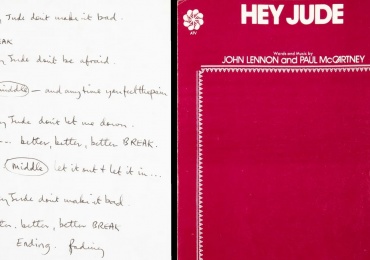 Jude don't make it bad.
BREAK
Jude don't be afraid.
middle – and any time you feel the pain
Jude don't let me down.
... better, better, better BREAK.
middle let it out & let it in ...
Jude don't make it bad.
better, better BREAK
Ending. fading
HEY JUDE
ATV
Words and Music by
JOHN LENNON and PAUL McCARTNEY